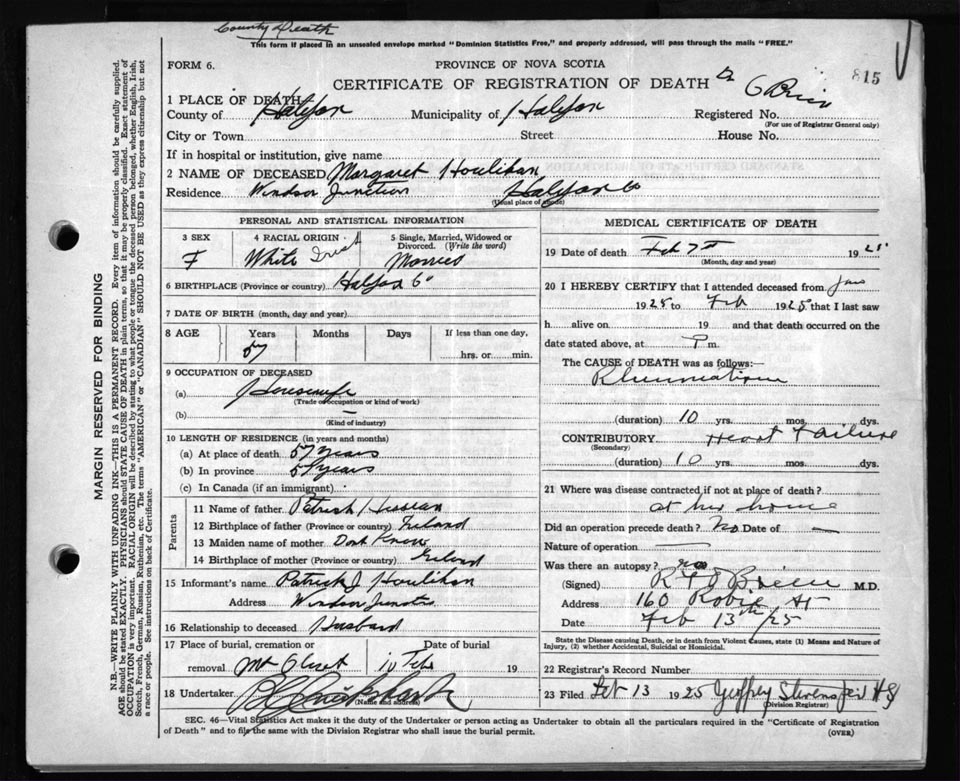 County Death
This form if placed in an unsealed envelope marked "Dominion Statistics Free," and properly addressed, will pass through the mails "FREE."
FORM 6.
PROVINCE OF NOVA SCOTIA
815
CERTIFICATE OF REGISTRATION OF DEATH Dr O'Brien
1 PLACE OF DEATH
County of Halifax Municipality of Halifax Registered No.
(For use of Registrar General only)
City or Town Street House No.
If in hospital or institution, give name
2 NAME OF DECEASED Margaret Houlihan
Residence Windsor Junction Halifax Co
(Usual place of abode)
PERSONAL AND STATISTICAL INFORMATION
3 SEX F
4 RACIAL ORIGIN White Irish
5 Single, Married, Widowed or Divorced. (Write the word) Married
6 BIRTHPLACE (Province or country) Halifax Co
7 DATE OF BIRTH (month, day and year)
8 AGE Years 57 Months Days If less than one day, hrs. or min.
9 OCCUPATION OF DECEASED
(a) Housewife
(Trade or occupation or kind of work)
(b) —
(Kind of industry)
10 LENGTH OF RESIDENCE (in years and months)
(a) At place of death 57 years
(b) In province 57 years
(c) In Canada (if an immigrant)
Parents
11 Name of father Patrick
12 Birthplace of father (Province or country) Ireland
13 Maiden name of mother Dont Know
14 Birthplace of mother (Province or country) Ireland
15 Informant's name Patrick J Houlihan
Address Windsor Junction
16 Relationship to deceased Husband
17 Place of burial, cremation or Date of burial
removal Mt Olivet 10 Feb 19
18 Undertaker
(Name and address)
MEDICAL CERTIFICATE OF DEATH
19 Date of death Feb 7th 1925
(Month, day and year)
20 I HEREBY CERTIFY that I attended deceased from Jan
1925 to Feb 1925 that I last saw
h alive on 19 and that death occurred on the
date stated above, at P m.
The CAUSE of DEATH was as follows:
Rheumatism
(duration) 10 yrs. mos. dys.
CONTRIBUTORY Heart Failure
(Secondary)
(duration) 10 yrs. mos. dys.
21 Where was disease contracted if not at place of death?
at her home
Did an operation precede death? No Date of —
Nature of operation —
Was there an autopsy? no
(Signed) O'Brien M.D.
Address 160 Robie St
Date Feb 13th /25
State the Disease causing Death, or in death from Violent Causes, state (1) Means and Nature of Injury, (2) whether Accidental, Suicidal or Homicidal.
22 Registrar's Record Number
23 Filed Feb 13 1925 Geoffrey Stevens
(Division Registrar)
SEC. 46—Vital Statistics Act makes it the duty of the Undertaker or person acting as Undertaker to obtain all the particulars required in the "Certificate of Registration
of Death" and to file the same with the Division Registrar who shall issue the burial permit.
(OVER)
MARGIN RESERVED FOR BINDING
N.B.—WRITE PLAINLY WITH UNFADING INK—THIS IS A PERMANENT RECORD. Every item of information should be carefully supplied.
AGE should be stated EXACTLY. PHYSICIANS should STATE CAUSE OF DEATH in plain terms, so that it may be properly classified. Exact statement of
OCCUPATION is very important. RACIAL ORIGIN will be described by stating to what people or tongue the deceased person belonged, whether English, Irish,
Scotch, French, German, Russian, Ruthenian, etc. The terms "AMERICAN" or "CANADIAN" SHOULD NOT BE USED as they express citizenship but not
a race or people. See instructions on back of Certificate.